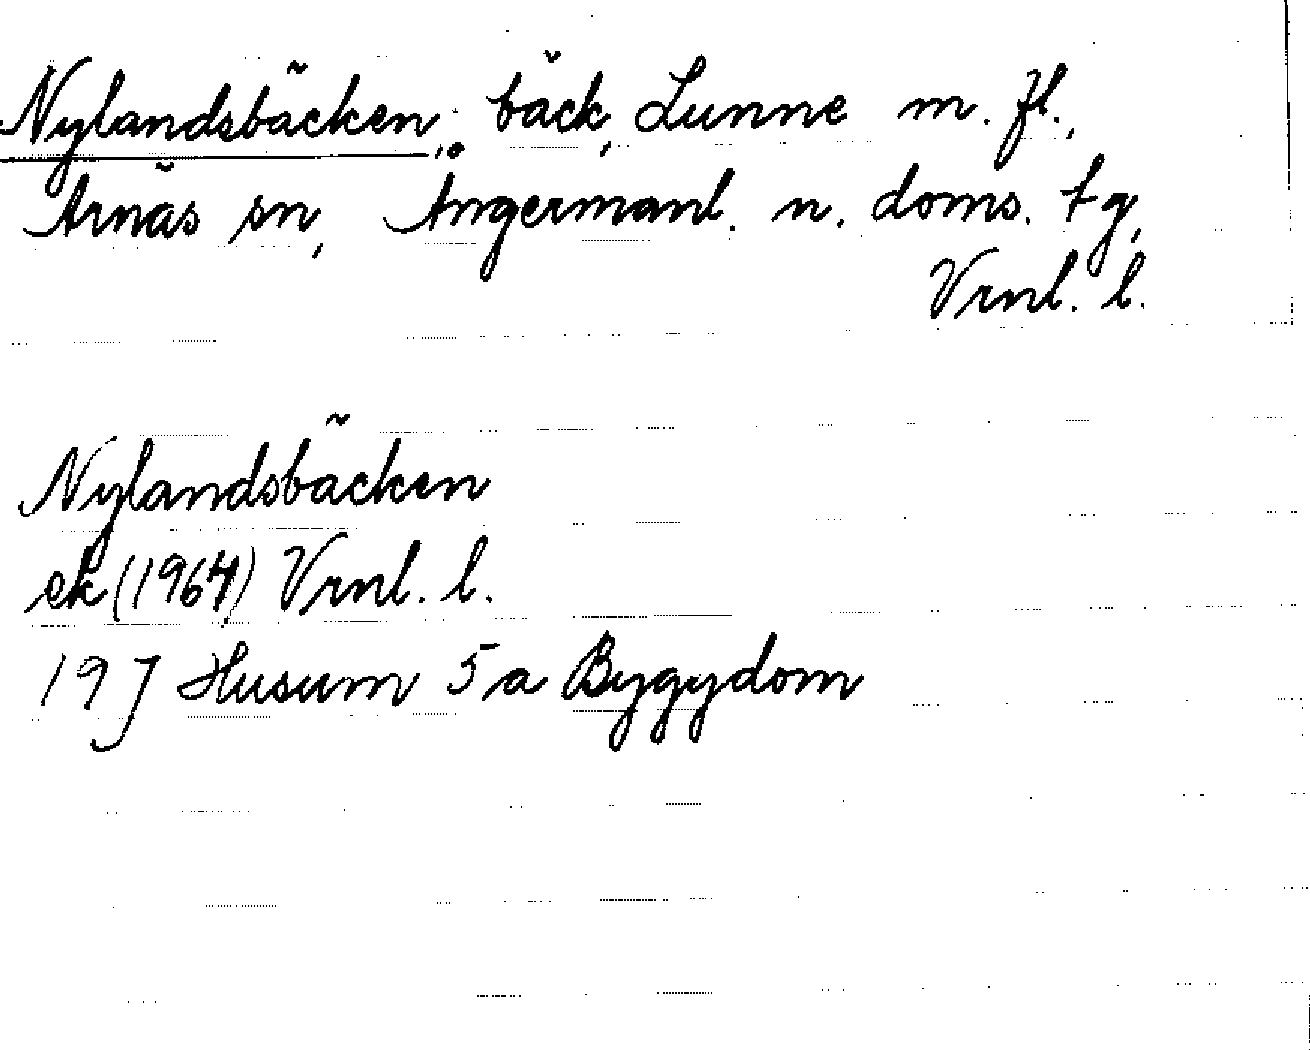 Nylandsbäcken, bäck, Lunne m. fl.,
Arnäs sn, Ångermanl. n. doms. tg,
Vrnl. l.
Nylandsbäcken
ek (1964) Vrnl. l.
19 J Husum 5 a Bygydom